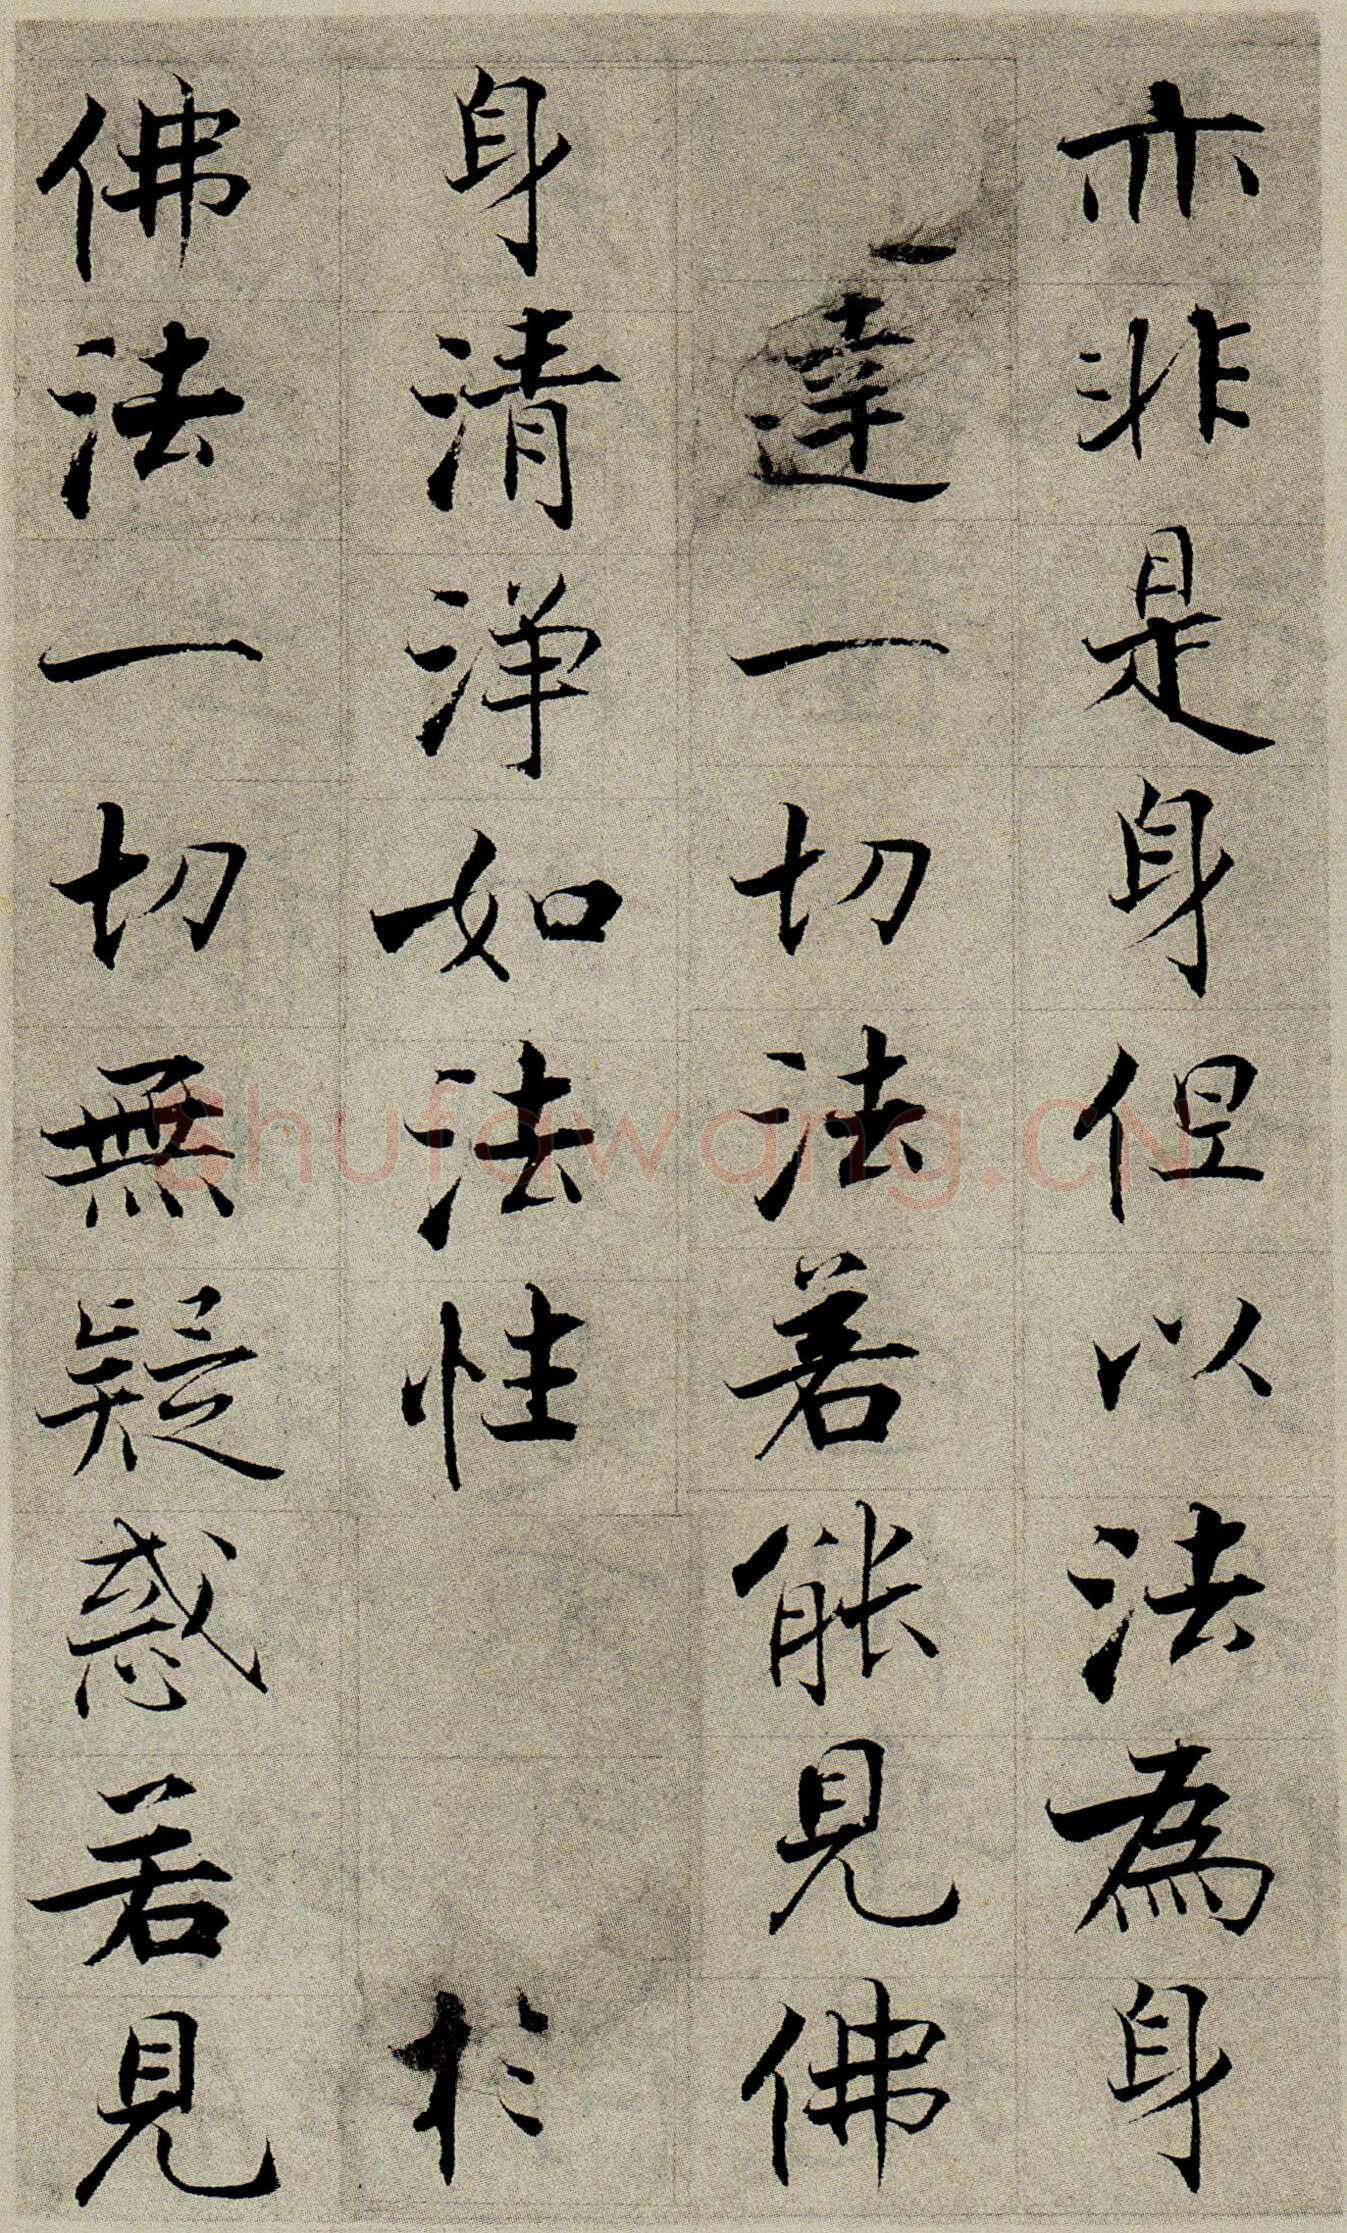 亦非是身但以法為身
達一切法若能見佛
身清淨如法性
於
佛法一切無疑惑若見
Shufawang.CN